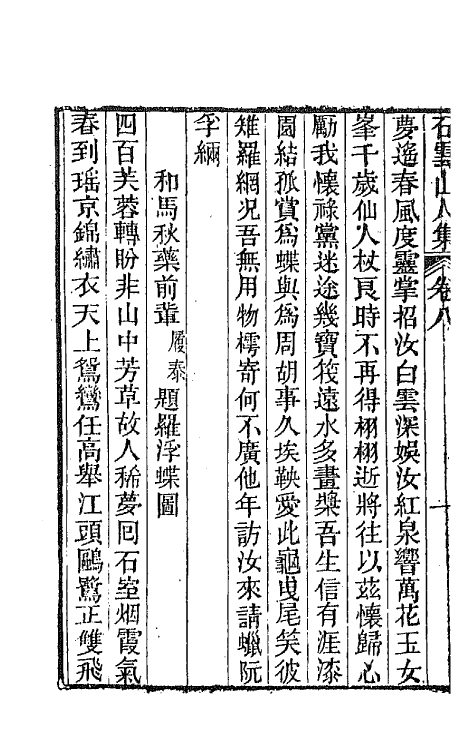 石雲山人集 卷八 一
夢遙春風度靈掌招汝白雲深娛汝紅泉響萬花玉女
峯千歲仙人杖良時不再得栩栩逝將往以茲懷歸心
勵我懷祿黨迷途幾寶筏遠水多畫槳吾生信有涯漆
園結孤賞爲蝶與爲周胡事久埃鞅愛此龜曳尾笑彼
雉羅網况吾無用物樗寄何不廣他年訪汝來請蠟阮
孚緉
和馬秋藥前輩履泰題羅浮蝶圖
四百芙蓉轉盼非山中芳草故人稀夢回石室烟霞氣
春到瑶京錦繡衣天上鴛鸞任高舉江頭鷗鷺正雙飛